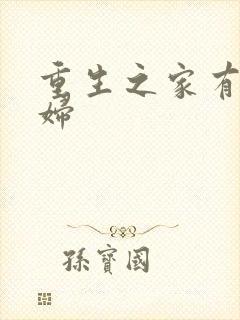 重生之家有
婦
孫寶國